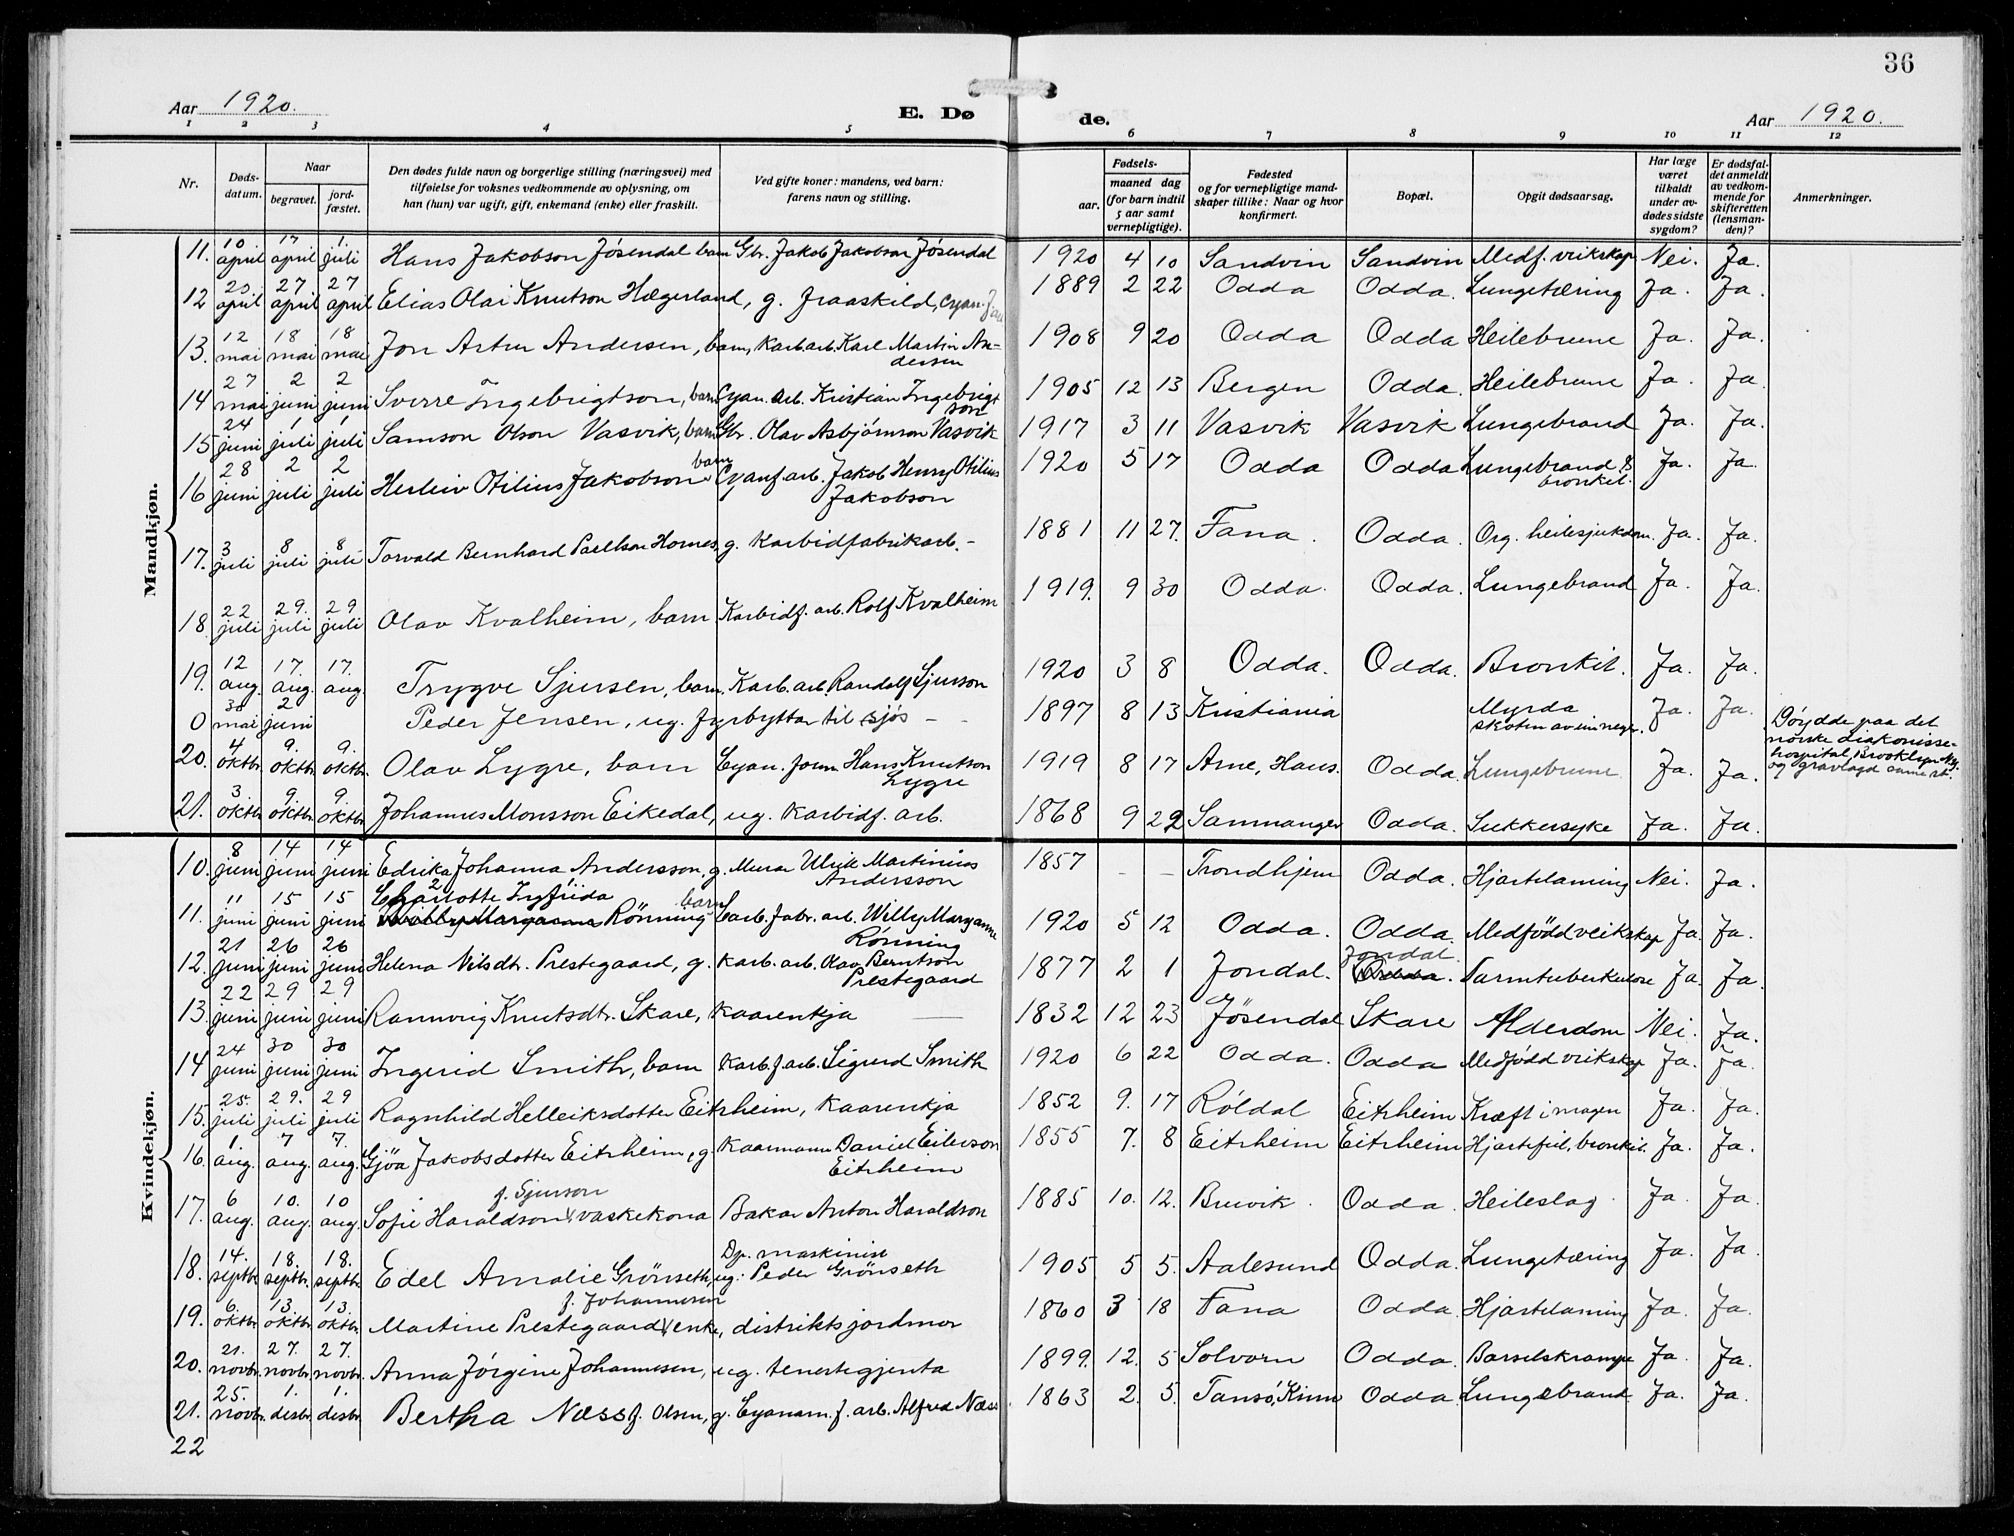 36
Aar 1920.
E. Dø
de.
Aar 1920.
1 2 3 4 5 6 7 8 9 10 11 12
Nr.
Døds-
datum.
Naar
begravet.
jord-
fæstet.
Den dødes fulde navn og borgerlige stilling (næringsvei) med
tilføielse for voksnes vedkommende av oplysning, om
han (hun) var ugift, gift, enkemand (enke) eller fraskilt.
Ved gifte koner: mandens, ved barn:
farens navn og stilling.
Fødsels-
aar.
maaned dag
(for barn indtil
5 aar samt
vernepligtige).
Fødested
og for vernepligtige mand-
skaper tillike: Naar og hvor
konfirmert.
Bopæl.
Opgit dødsaarsag.
Har læge
været
tilkaldt
under av-
dødes sidste
sygdom?
Er dødsfal-
det anmeldt
av vedkom-
mende for
skifteretten
(lensman-
den)?
Anmerkninger.
Mandkjøn.
11. 10 april 17 april 1. juli Hans Jakobson Jøsendal barn Gbr. Jakob Jakobson Jøsendal 1920 4 10 Sandvin Sandvin Medf. veikskap Nei. Ja.
12 23 april 27 april 27 april Elias Olai Knutson Hægerland, g. fraaskild, cyan. 1889 2 22 Odda Odda. Lungetæring Ja. Ja.
13. 12 mai 18 mai 18 mai Jon Artur Andersen, barn, Karb.arb. Karl Martin An-
dersen 1908 9 20 Odda Odda Heilebrune Ja. Ja.
14 27 mai 2 juni 2 juni Sverre Ingebrigtson, barn Cyan. arb. Kristian Ingebrigt
son 1905 12 13 Bergen Odda. Heilebrune Ja. Ja.
15 24 juni 1 juli 1 juli Samson Olson Vasvik, barn Gbr. Olav Asbjørnson Vasvik 1917 3 11 Vasvik Vasvik Lungebrand Ja. Ja.
16 28 juni 2 juli 2 juli Herleiv Otilius Jakobson barn Cyanf. arb. Jakob Henry Otilius
Jakobson 1920 5 17 Odda Odda Lungebrand &
bronkit. Ja. Ja.
17. 3 juli 8 juli 8 juli Torvald Bernhard Paulson Hornes, g. Karbidfabrikarb. - 1881 11 27. Fana. Odda. Org. heilesjukdom. Ja. Ja.
18. 22 juli 29. juli 29 juli Olav Kvalheim, barn Karbidf. arb. Rolf Kvalheim 1919. 9 30 Odda. Odda. Lungebrand Ja. Ja.
19. 12 aug. 17. aug. 17. aug. Trygve Sjursen, barn. Karb. arb. Randolf Sjurson 1920 3 8 Odda. Odda. Bronkit. Ja. Ja.
0 30 mai 2 juni Peder Jensen, ug. fyrbyttar til sjøs - - 1897 8 13 Kristiania Myrda
skoten av ein neger. Ja. Ja. Døydde paa det
norske diakonisse-
hospital, Brooklyn N.Y.
og gravlagd same st.
20. 4 oktbr. 9. oktbr. 9. oktbr. Olav Lygre, barn Cyan. form. Hans Knutson
Lygre 1919 8 17 Arne, Haus. Odda. Lungebrune Ja. Ja.
21. 3 oktbr. 9 oktbr. 9 oktbr. Johannes Monsson Eikedal, ug. Karbidf. arb. 1868 9 22 Samnanger Odda. Sukkersyke Ja. Ja.
Kvindekjøn.
10. 8 juni 14 juni 14 juni Edrika Johanna Andersson, g. Murar Ulrik Martinius
Andersson 1857 - - Trondhjem Odda. Hjartelaming Nei. Ja.
Charlotte Ingfrida
11. 11 juni 15 juni 15 juni Rönning barn Carb. fabr. arb. Willy Margarne
Rönning 1920 5 12 Odda. Odda. Medfødd veikskap Ja. Ja.
12. 21 juni 26 juni 26 juni Helena Nilsdtr. Prestegaard, g. Karb. arb. Olav Berntson
Prestegaard 1877 2 1 Jondal. Jondal. Odda. Tarmtuberkulose Ja. Ja.
13. 22 juni 29 juni 29 juni Rannveig Knutsdtr. Skare, kaarenkja 1832 12 23 Jøsendal Skare Alderdom Nei. Ja.
14 24 juni 30 juni 30 juni Ingerid Smith, barn Karb. f. arb. Sigurd Smith 1920 6 22 Odda. Odda Medfødd veikskap Ja. Ja.
15. 25. juli 29. juli 29 juli Ragnhild Helleiksdotter Eitrheim, kaarenkja 1852 9. 17 Røldal Eitrheim Kræft i magen Ja. Ja.
16. 1. aug. 7 aug. 7. aug. Gjöa Jakobsdotter Eitrheim, g. Kaarmann David Eilevson
Eitrheim 1855 7. 8 Eitrheim Eitrheim Hjartefeil, bronkit. Ja. Ja.
f. Sjurson
17. 6 aug. 10. aug. 10 aug. Sofie Haraldson vaskekona Bakar Anton Haraldson 1885 10. 12. Bruvik. Odda. Heileslag. Ja. Ja.
Dp. maskinist
18. 14. septbr. 18. septbr. 18. septbr. Edel Amalie Grönseth, ug: Peder Grönseth 1905 5 5. Aalesund Odda. Lungetæring Ja. Ja.
f. Johannesen
19. 6. oktbr. 13. oktbr. 13. oktbr. Martine Prestegaard enke, distriktsjordmor 1860 3 18 Fana Odda. Hjartelaming Ja. Ja.
20. 21. novbr. 27. novbr. 27. novbr. Anna Jørgine Johannesen, ug. tenestegjenta 1899. 12. 5 Solvorn Odda. Barselskrampe Ja. Ja.
21. 25. novbr. 1. desbr. 1. desbr. Bertha Næss f. Olsen, g. Cyanam. f. arb. Alfred Næss 1863 2. 5. Tansö, Kinn Odda. Lungebrand. Ja. Ja.
22